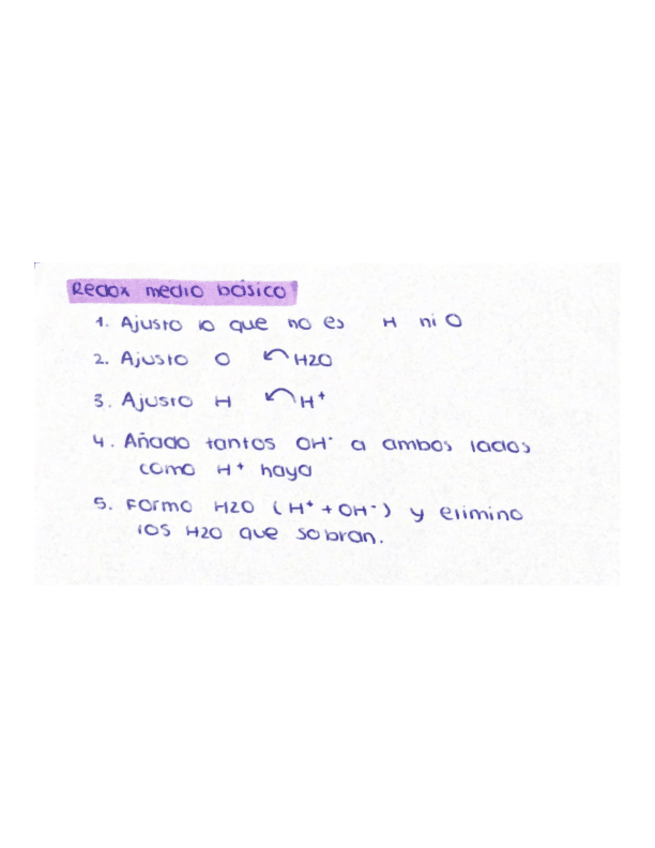 Redox medio básico
1. Ajusto lo que no es H ni O
2. Ajusto O ↶ H2O
3. Ajusto H ↶ H⁺
4. Añado tantos OH⁻ a ambos lados
como H⁺ haya
5. Formo H2O (H⁺ + OH⁻) y elimino
los H2O que sobran.